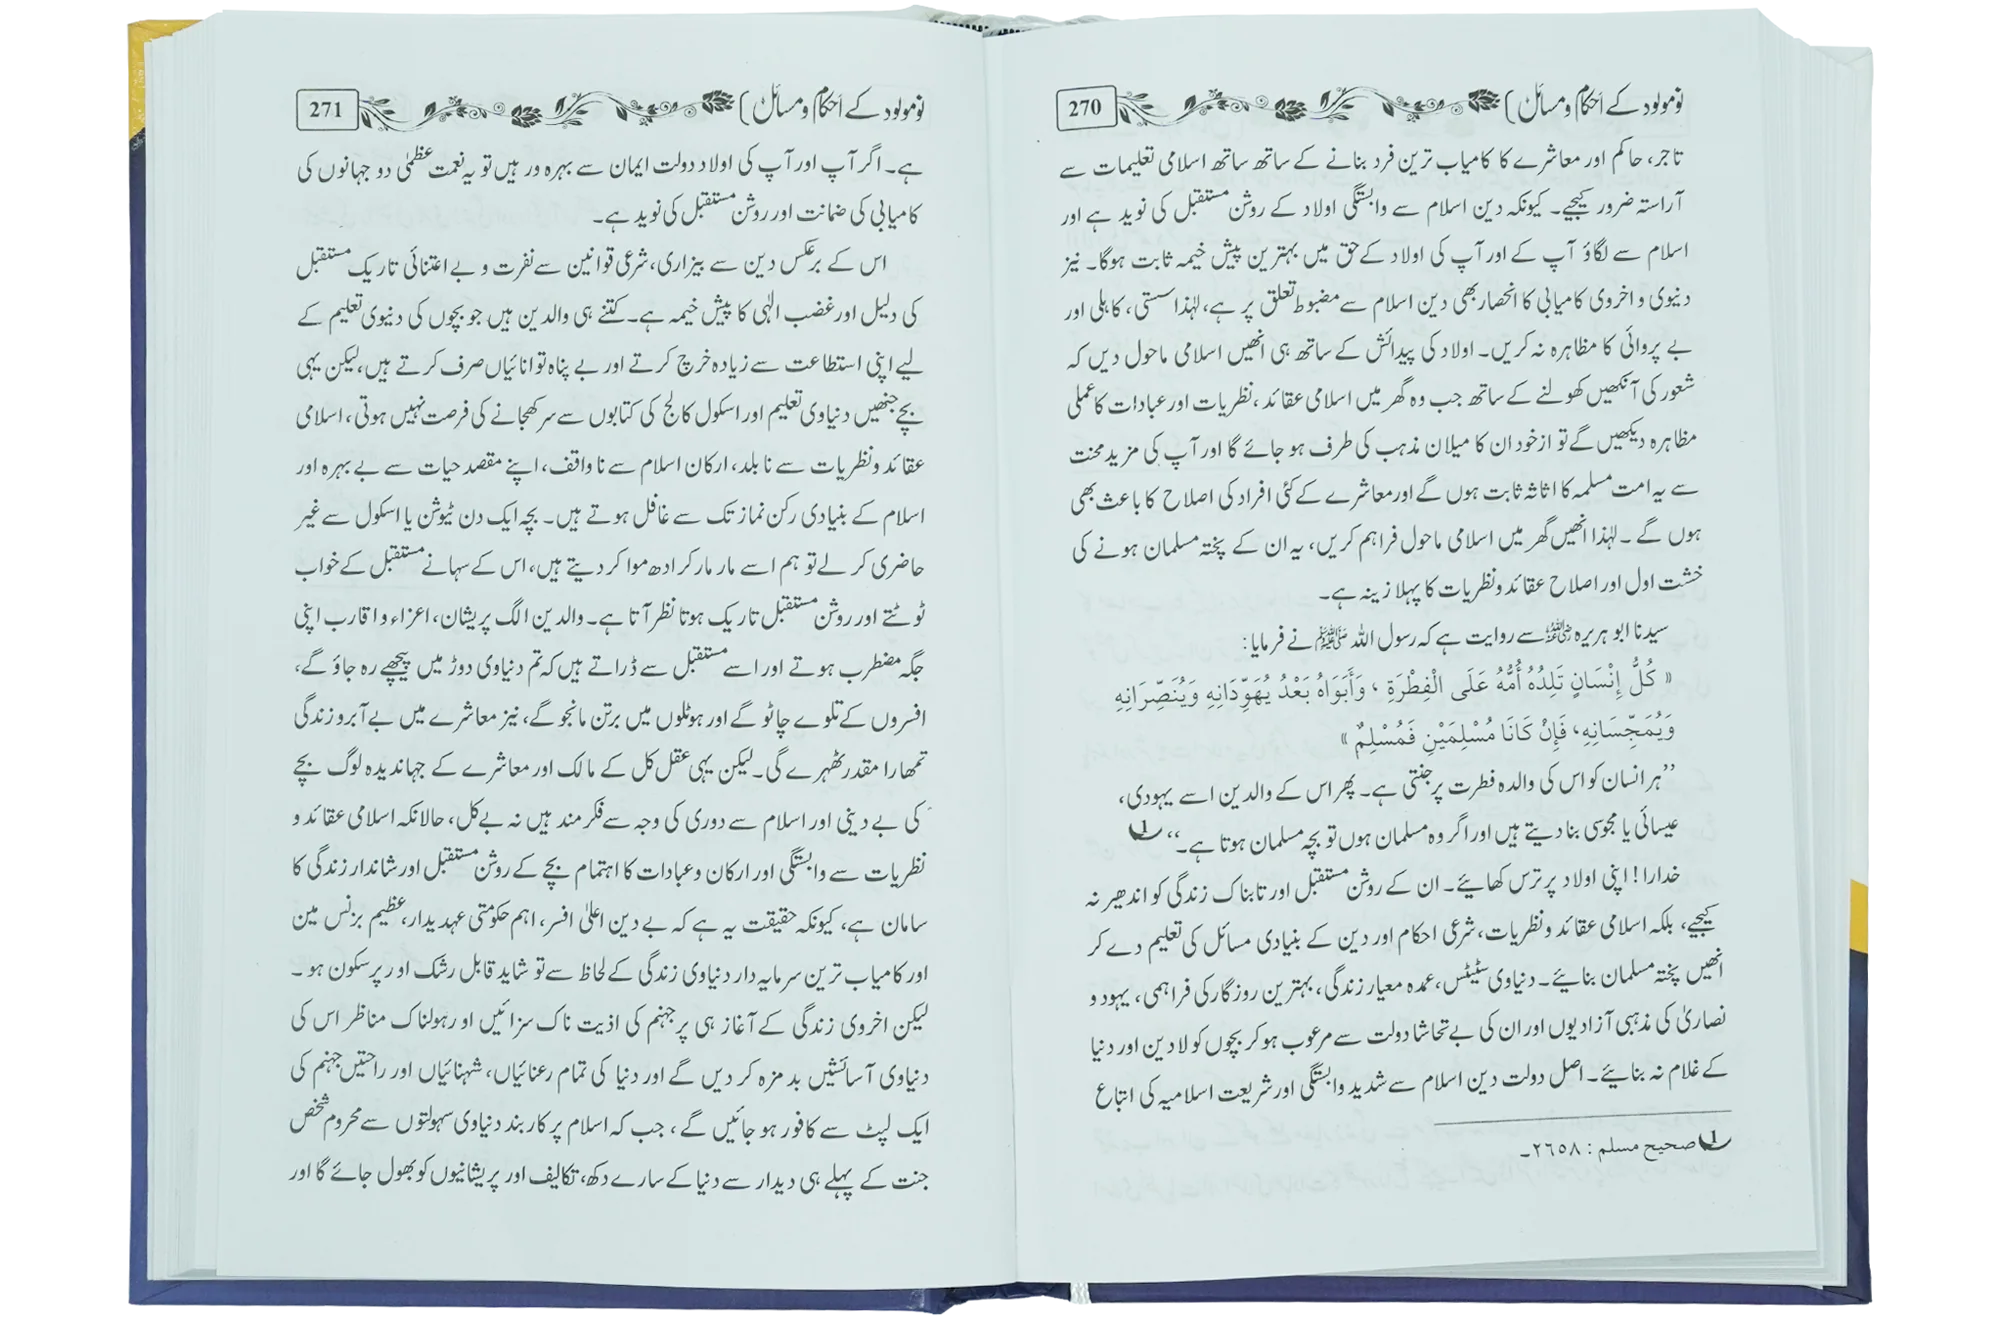 نومولود کے احکام و مسائل
270
تاجر، حاکم اور معاشرے کا کامیاب ترین فرد بنانے کے ساتھ ساتھ اسلامی تعلیمات سے
آراستہ ضرور کیجیے۔ کیونکہ دین اسلام سے وابستگی اولاد کے روشن مستقبل کی نوید ہے اور
اسلام سے لگاؤ آپ کے اور آپ کی اولاد کے حق میں بہترین پیش خیمہ ثابت ہوگا۔ نیز
دنیوی و اخروی کامیابی کا انحصار بھی دین اسلام سے مضبوط تعلق پر ہے، لہٰذا سستی، کاہلی اور
بے پروائی کا مظاہرہ نہ کریں۔ اولاد کی پیدائش کے ساتھ ہی انھیں اسلامی ماحول دیں کہ
شعور کی آنکھیں کھولنے کے ساتھ جب وہ گھر میں اسلامی عقائد، نظریات اور عبادات کا عملی
مظاہرہ دیکھیں گے تو ازخود ان کا میلان مذہب کی طرف ہو جائے گا اور آپ کی مزید محنت
سے یہ امت مسلمہ کا اثاثہ ثابت ہوں گے اور معاشرے کے کئی افراد کی اصلاح کا باعث بھی
ہوں گے۔ لہٰذا انھیں گھر میں اسلامی ماحول فراہم کریں، یہ ان کے پختہ مسلمان ہونے کی
خشت اول اور اصلاح عقائد و نظریات کا پہلا زینہ ہے۔
سیدنا ابو ہریرہ رضی اللہ عنہ سے روایت ہے کہ رسول اللہ ﷺ نے فرمایا:
« كُلُّ إِنْسَانٍ تَلِدُهُ أُمُّهُ عَلَى الْفِطْرَةِ ، وَأَبَوَاهُ بَعْدُ يُهَوِّدَانِهِ وَيُنَصِّرَانِهِ
وَيُمَجِّسَانِهِ، فَإِنْ كَانَا مُسْلِمَيْنِ فَمُسْلِمٌ »
’’ہر انسان کو اس کی والدہ فطرت پر جنتی ہے۔ پھر اس کے والدین اسے یہودی،
عیسائی یا مجوسی بنا دیتے ہیں اور اگر وہ مسلمان ہوں تو بچہ مسلمان ہوتا ہے۔‘‘ 1
خدارا! اپنی اولاد پر ترس کھائیے۔ ان کے روشن مستقبل اور تابناک زندگی کو اندھیر نہ
کیجیے، بلکہ اسلامی عقائد و نظریات، شرعی احکام اور دین کے بنیادی مسائل کی تعلیم دے کر
انھیں پختہ مسلمان بنائیے۔ دنیاوی سٹیٹس، عمدہ معیار زندگی، بہترین روزگار کی فراہمی، یہود و
نصاریٰ کی مذہبی آزادیوں اور ان کی بے تحاشا دولت سے مرعوب ہو کر بچوں کو لا دین اور دنیا
کے غلام نہ بنائیے۔ اصل دولت دین اسلام سے شدید وابستگی اور شریعت اسلامیہ کی اتباع
1 صحيح مسلم : ٢٦٥٨۔
نومولود کے احکام و مسائل
271
ہے۔ اگر آپ اور آپ کی اولاد دولت ایمان سے بہرہ ور ہیں تو یہ نعمت عظمیٰ دو جہانوں کی
کامیابی کی ضمانت اور روشن مستقبل کی نوید ہے۔
اس کے برعکس دین سے بیزاری، شرعی قوانین سے نفرت و بے اعتنائی تاریک مستقبل
کی دلیل اور غضب الٰہی کا پیش خیمہ ہے۔ کتنے ہی والدین ہیں جو بچوں کی دنیوی تعلیم کے
لیے اپنی استطاعت سے زیادہ خرچ کرتے اور بے پناہ توانائیاں صرف کرتے ہیں، لیکن یہی
بچے جنھیں دنیاوی تعلیم اور اسکول کالج کی کتابوں سے سر کھجانے کی فرصت نہیں ہوتی، اسلامی
عقائد و نظریات سے نابلد، ارکان اسلام سے ناواقف، اپنے مقصد حیات سے بے بہرہ اور
اسلام کے بنیادی رکن نماز تک سے غافل ہوتے ہیں۔ بچہ ایک دن ٹیوشن یا اسکول سے غیر
حاضری کر لے تو ہم اسے مار مار کر ادھ موا کر دیتے ہیں، اس کے سہانے مستقبل کے خواب
ٹوٹتے اور روشن مستقبل تاریک ہوتا نظر آتا ہے۔ والدین الگ پریشان، اعزاء و اقارب اپنی
جگہ مضطرب ہوتے اور اسے مستقبل سے ڈراتے ہیں کہ تم دنیاوی دوڑ میں پیچھے رہ جاؤ گے،
افسروں کے تلوے چاٹو گے اور ہوٹلوں میں برتن مانجو گے، نیز معاشرے میں بے آبرو زندگی
تمھارا مقدر ٹھہرے گی۔ لیکن یہی عقل کل کے مالک اور معاشرے کے جہاندیدہ لوگ بچے
کی بے دینی اور اسلام سے دوری کی وجہ سے فکر مند ہیں نہ بے کل، حالانکہ اسلامی عقائد و
نظریات سے وابستگی اور ارکان و عبادات کا اہتمام بچے کے روشن مستقبل اور شاندار زندگی کا
سامان ہے، کیونکہ حقیقت یہ ہے کہ بے دین اعلیٰ افسر، اہم حکومتی عہدیدار، عظیم بزنس مین
اور کامیاب ترین سرمایہ دار دنیاوی زندگی کے لحاظ سے تو شاید قابل رشک اور پرسکون ہو۔
لیکن اخروی زندگی کے آغاز ہی پر جہنم کی اذیت ناک سزائیں اور ہولناک مناظر اس کی
دنیاوی آسائشیں بد مزہ کر دیں گے اور دنیا کی تمام رعنائیاں، شہنائیاں اور راحتیں جہنم کی
ایک لپٹ سے کافور ہو جائیں گے، جب کہ اسلام پر کاربند دنیاوی سہولتوں سے محروم شخص
جنت کے پہلے ہی دیدار سے دنیا کے سارے دکھ، تکالیف اور پریشانیوں کو بھول جائے گا اور